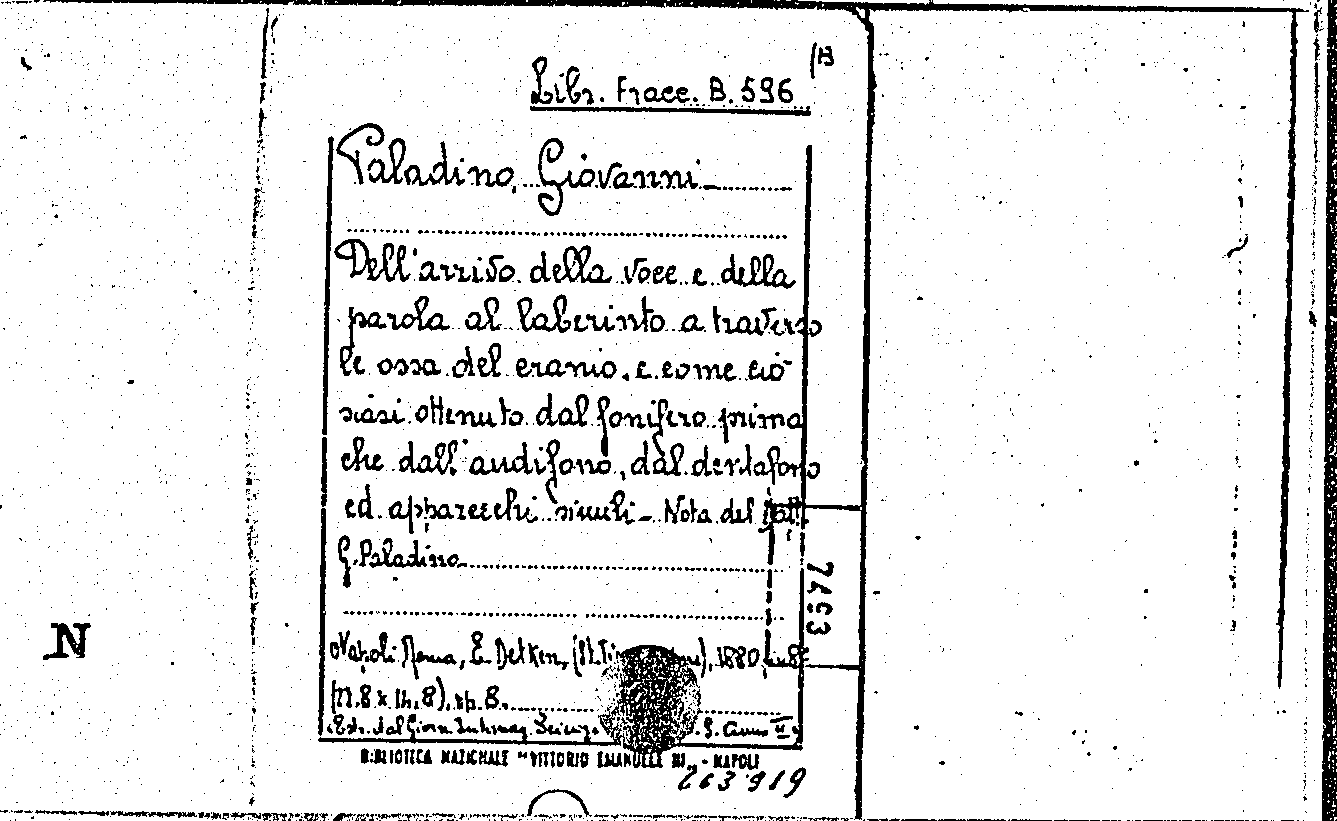 B
Libr. Fracc. B. 596
Paladino, Giovanni
Dell'arrivo della voce e della
parola al laberinto a traverso
le ossa del cranio, e come ciò
siasi ottenuto dal fonifero prima
che dall'audifono, dal dentafono
ed apparecchi simili - Nota del Dott.
G. Paladino
7493
N
Napoli Roma, E. Detken, 1880, in 8°
8), pp. 8.
Estr. dal Giorn. Internaz. Scienze S. Anno II
BIBLIOTECA NAZIONALE "VITTORIO EMANUELE III" - NAPOLI
263919